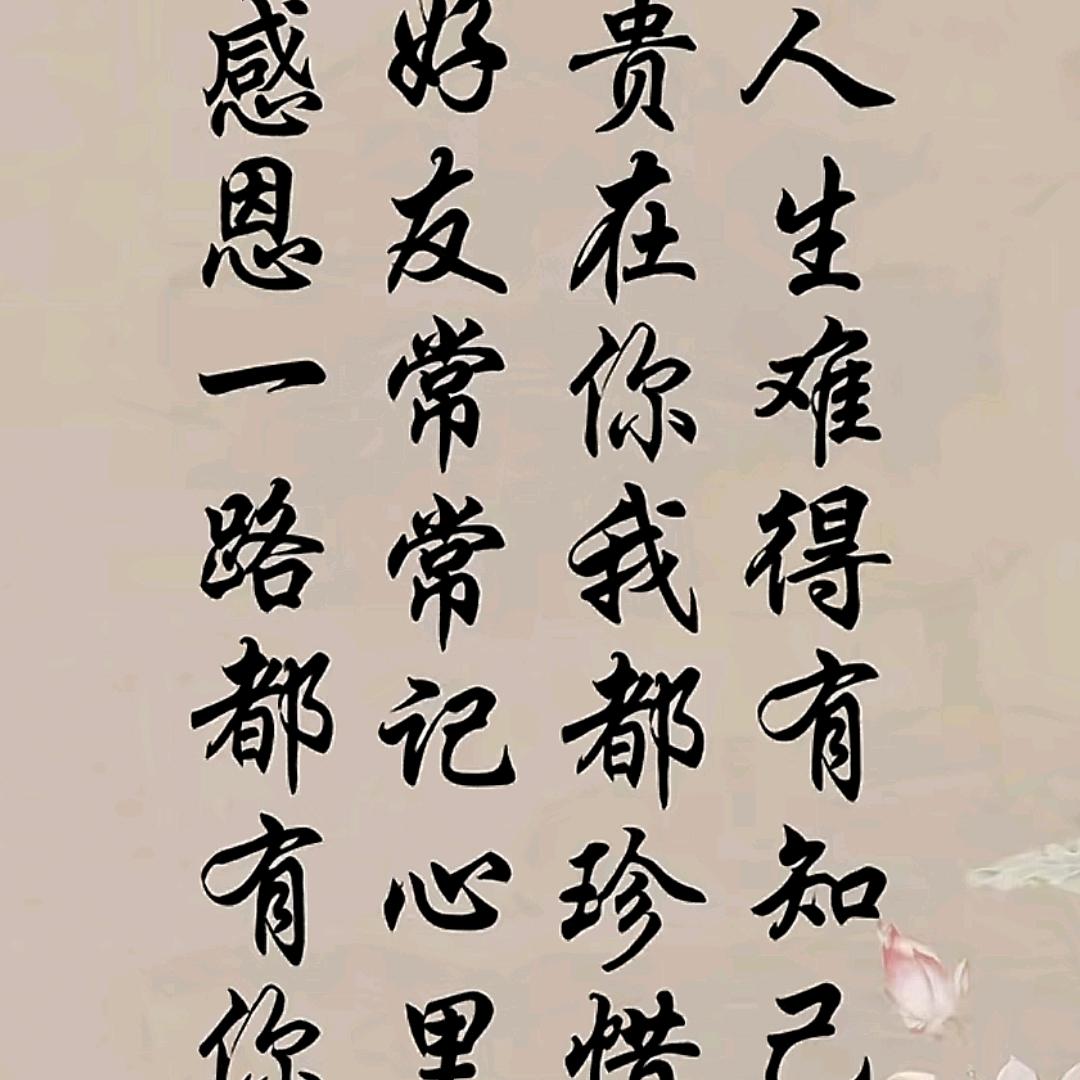 人生难得有知己
贵在你我都珍惜
好友常常记心里
感恩一路都有你